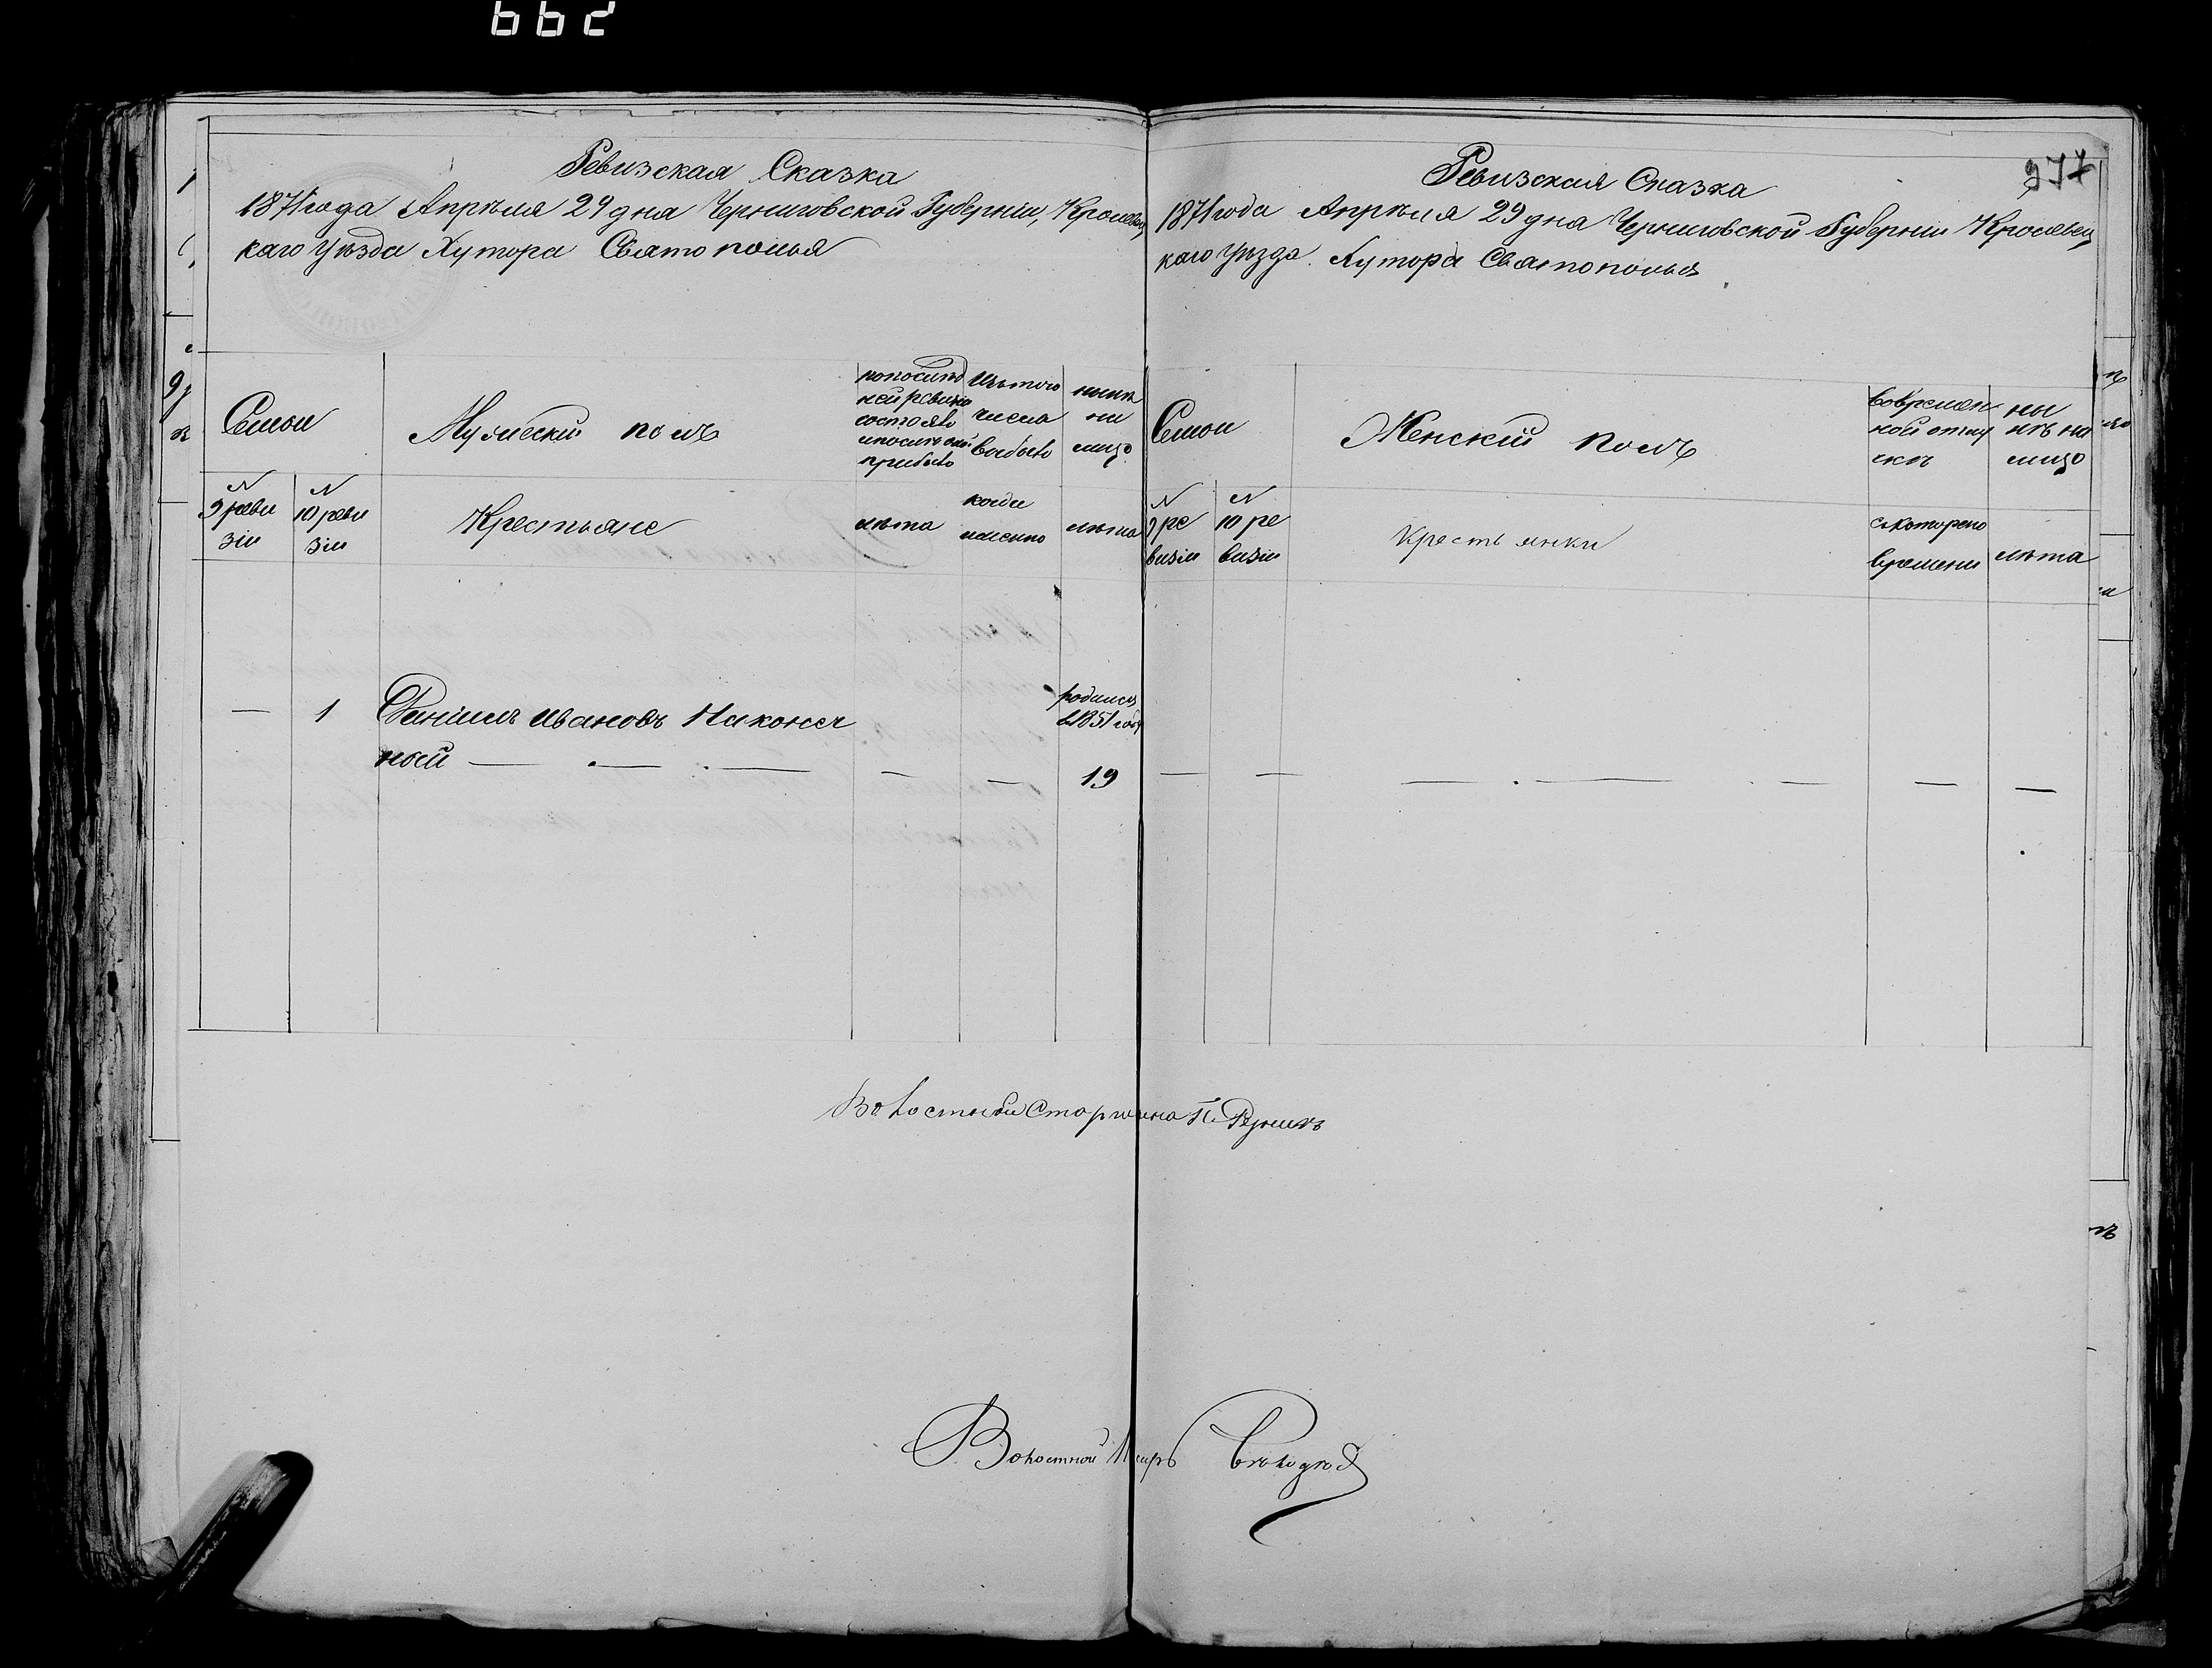 662
Ревизская Сказка
1871 года Апрѣля 29 дня Черниговской Губерніи, Кролевец
каго уѣзда Хутора Святополья
Семьи
Мужескій полъ
по послѣд
ней ревизіи
состояло
и послѣ оной
прибыло
Изъ того
числа
выбыло
нынѣ
на
лицо
№
9 реви
зіи
№
10 реви
зіи
Крестьяне
лѣта
когда
именно
лѣта
— 1 Даніилъ Ивановъ Наконеч
ный — — — — —
родился
въ 1851 году
19
Ревизская Сказка
277
1871 года Апрѣля 29 дня Черниговской Губерніи Кролевец
каго уѣзда Хутора Святополья
Семьи
Женскій полъ
во времен
ной отлу
чкѣ
ны
нѣ на
лицо
№
9 ре
визіи
№
10 ре
визіи
Крестьянки
съ котораго
времени
лѣта
— — — — — — —
Волостный Старшина П. Рудникъ
Волостной Писарь